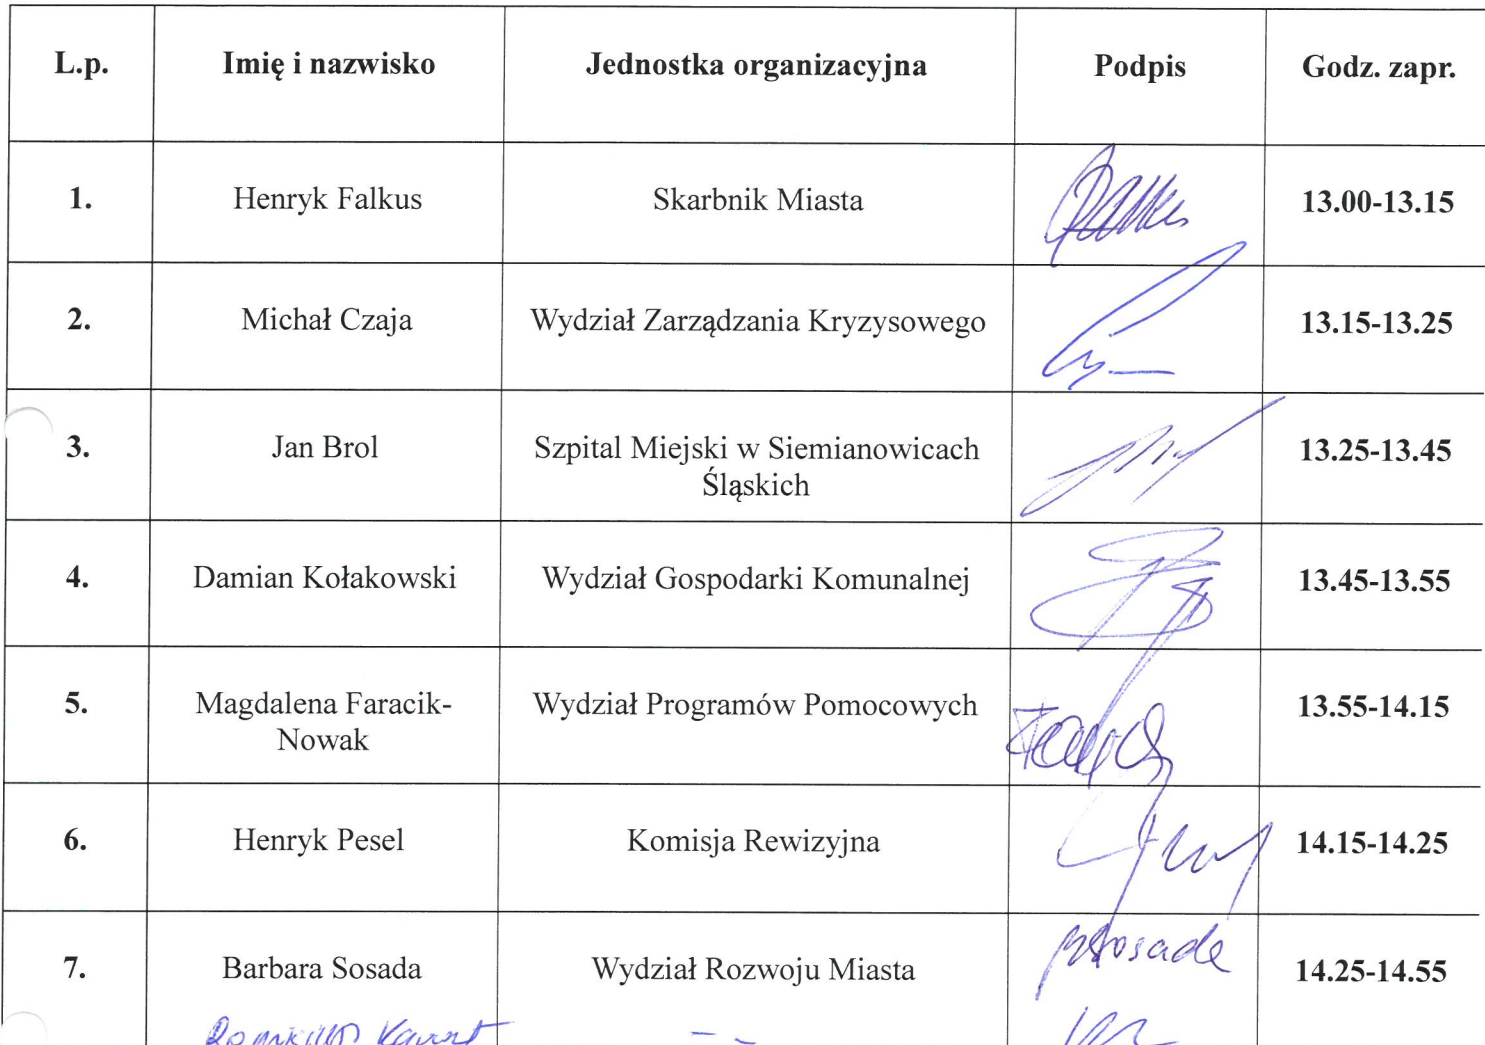 L.p. Imię i nazwisko Jednostka organizacyjna Podpis Godz. zapr.
1. Henryk Falkus Skarbnik Miasta 13.00-13.15
2. Michał Czaja Wydział Zarządzania Kryzysowego 13.15-13.25
3. Jan Brol Szpital Miejski w Siemianowicach 13.25-13.45
Śląskich
4. Damian Kołakowski Wydział Gospodarki Komunalnej 13.45-13.55
5. Magdalena Faracik- Wydział Programów Pomocowych 13.55-14.15
Nowak
6. Henryk Pesel Komisja Rewizyjna 14.15-14.25
7. Barbara Sosada Wydział Rozwoju Miasta 14.25-14.55